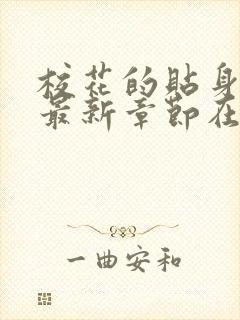 校花的贴身
最新章节在
一曲安和